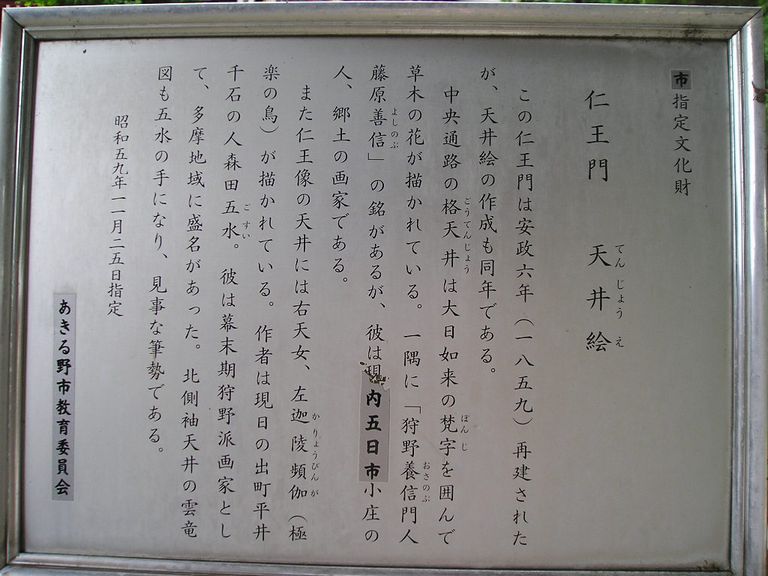 市指定文化財
仁王門 天井絵
てんじょうえ
この仁王門は安政六年(一八五九)再建された
が、天井絵の作成も同年である。
中央通路の格天井は大日如来の梵字を囲んで
ごうてんじょう
ぼんじ
草木の花が描かれている。一隅に「狩野養信門人
おさのぶ
藤原善信」の銘があるが、彼は現内五日市小庄の
よしのぶ
人、郷土の画家である。
また仁王像の天井には右天女、左迦陵頻伽(極
かりょうびんが
楽の鳥)が描かれている。作者は現日の出町平井
千石の人森田五水。彼は幕末期狩野派画家とし
ごすい
て、多摩地域に盛名があった。北側袖天井の雲竜
図も五水の手になり、見事な筆勢である。
昭和五九年一一月二五日指定
あきる野市教育委員会